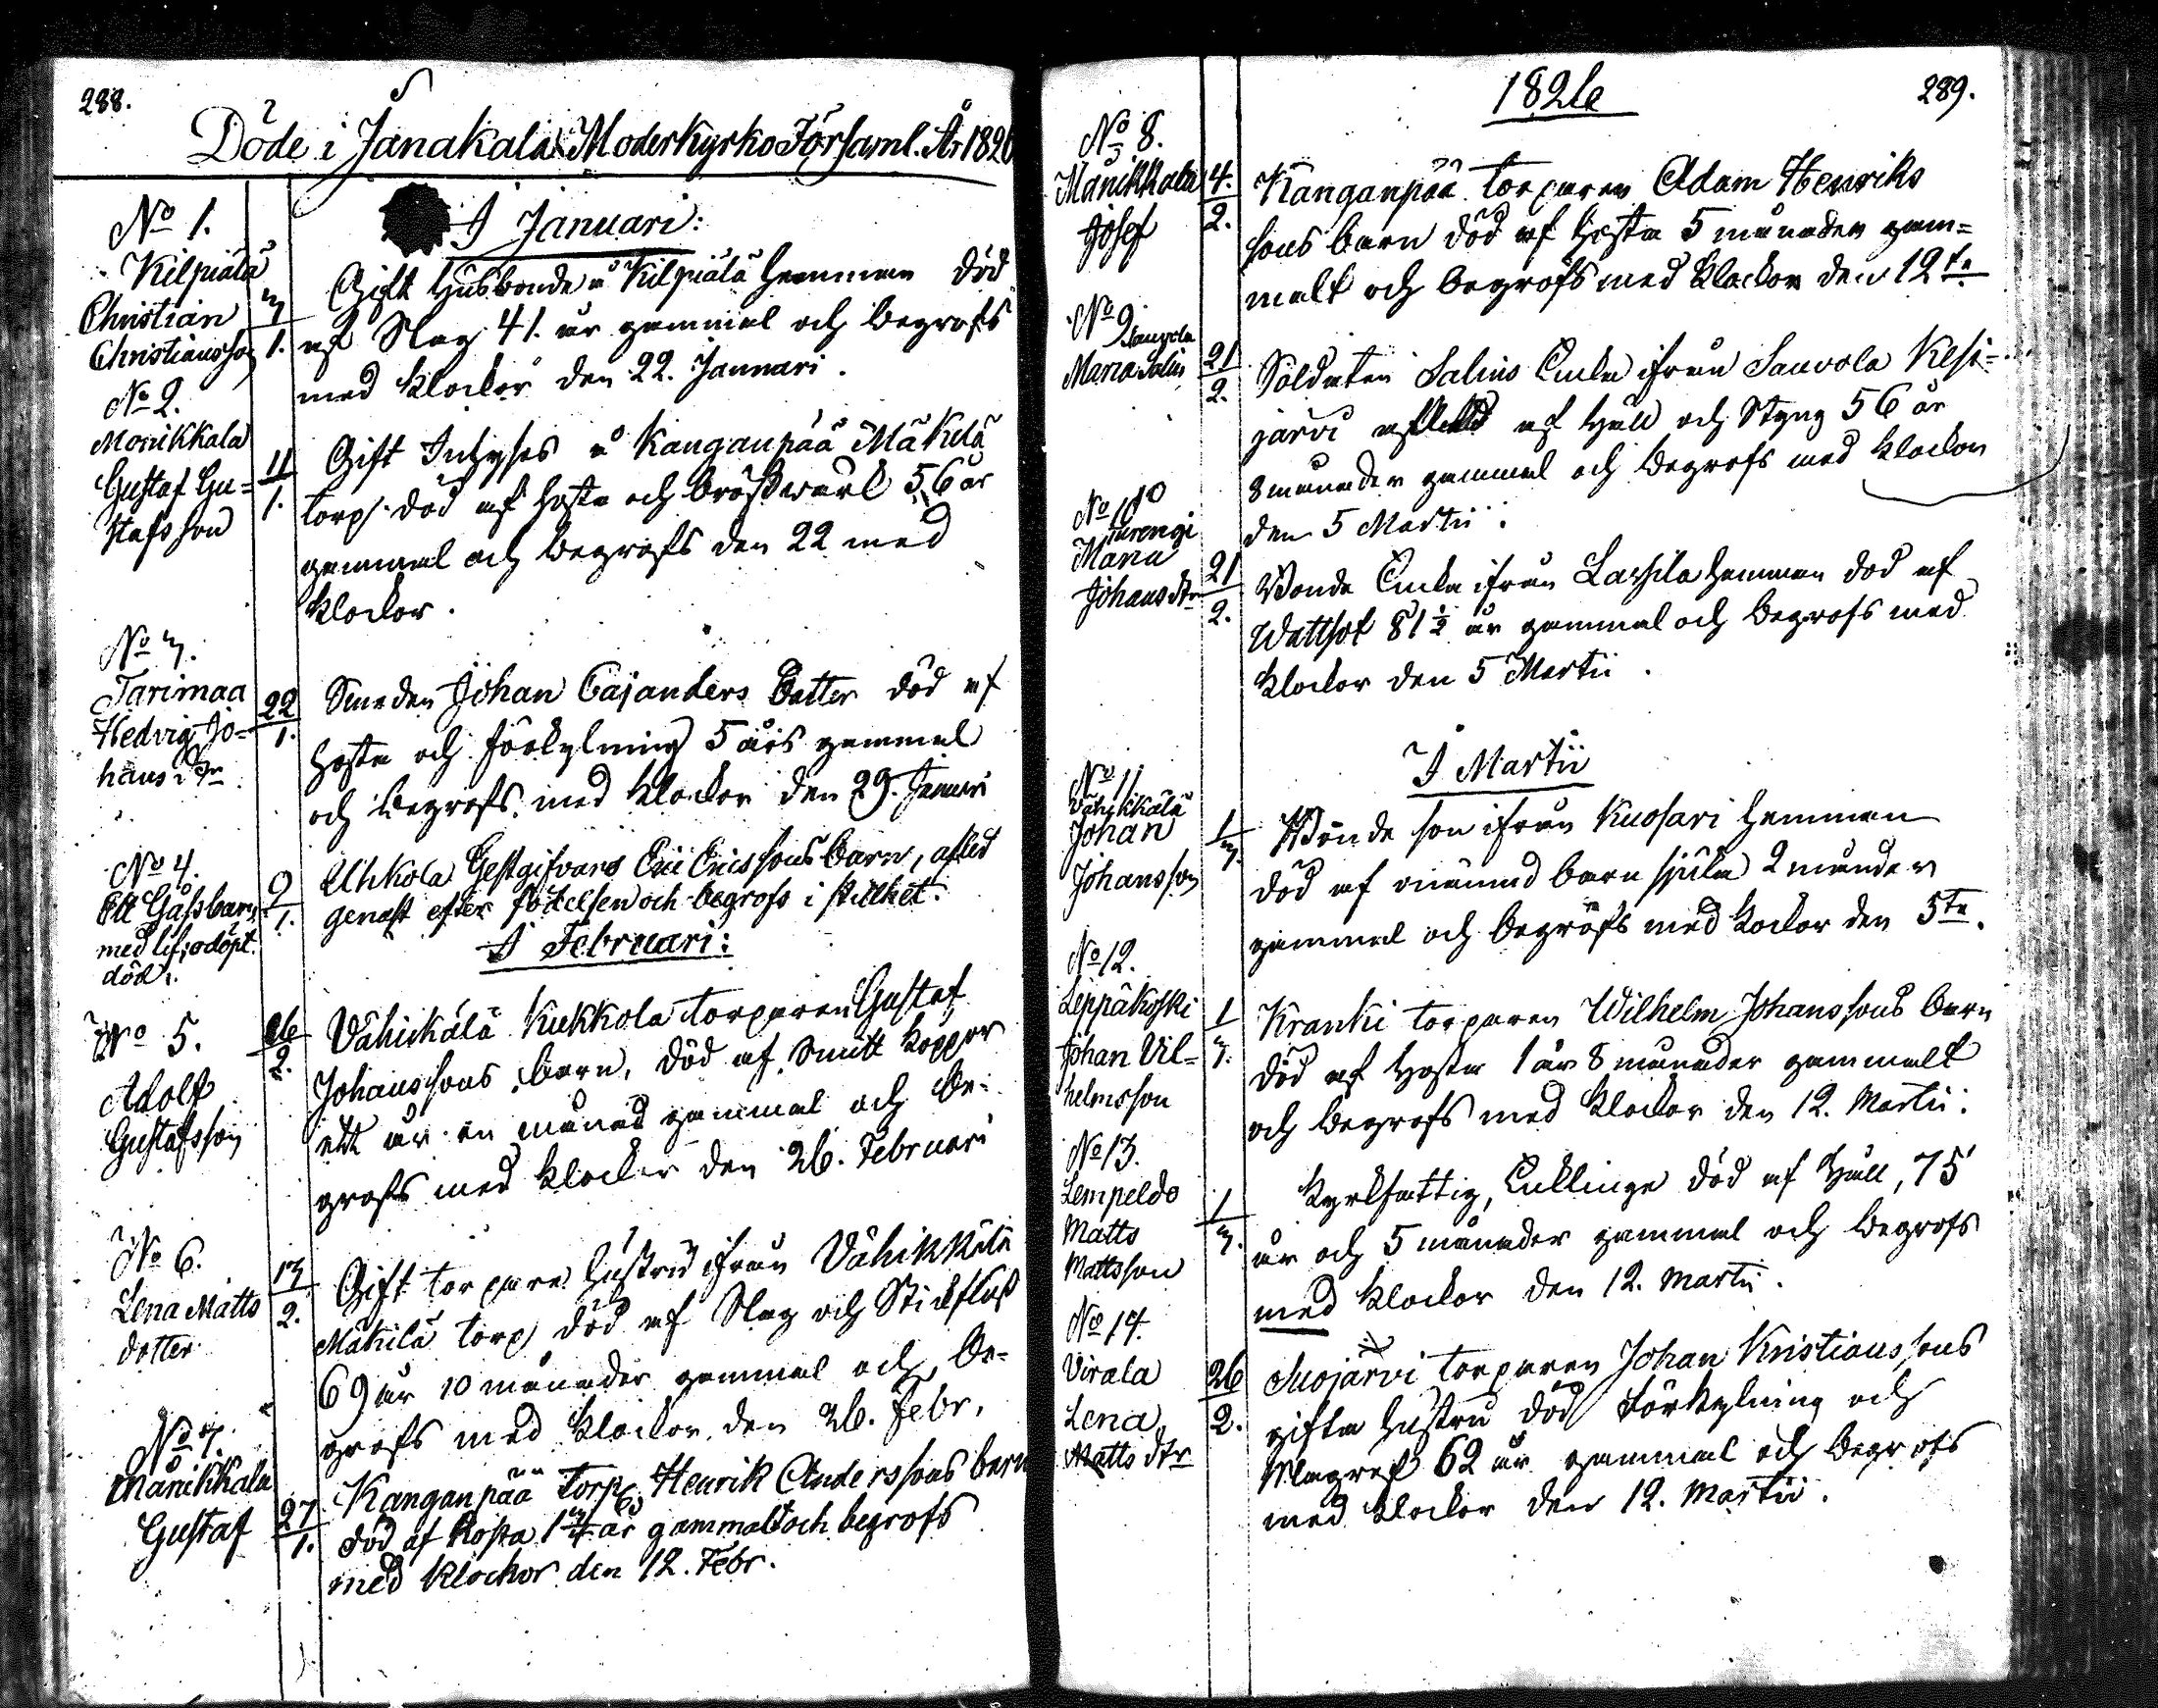 288.
Döde i Janakala Moderkyrko Församl. År 1826
I Januari:
No 1.
Kilpiälä
Christian
Christiansson
3/1.
Gift Husbonde å Kilpiälä hemman död
af Slag 41. år gammal och begrofs
med klockor den 22. Januari.
No 2.
Monikkala
Gustaf Gu=
stafsson
11/1.
Gift Inhyses å Kanganpää Mäkelä
torp. död af hosta och bröstwärk 56 år
gammal och begrofs den 22 med
klockor.
No 3.
Tarimaa
Hedvig Jo=
hans dtr
22/1.
Smeden Johan Cajanders Dotter död af
hosta och förkylning 5 års gammal
och begrofs med klockor den 29. Januari
No 4.
Ett Gåssbarn,
med lif, odöpt.
död.
9/1.
Uhkola Gestgifvare Eric Ericssons barn, afled
genast efter födelsen och begrofs i stillhet.
I Februari:
No 5.
Adolf
Gustafsson
16/2.
Vähikälä Kukkola torparen Gustaf
Johanssons barn, död af Smitt koppor
ett år en månad gammal och be-
grofs med klockor den 26. Februari
No 6.
Lena Matts
dotter
13/2.
Gift torpare hustru ifrån Vähikkälä
Mäkilä torp död af Slag och Stickfluss
69 år 10 månader gammal och be-
grofs med klockor den 26. Febr.
No 7.
Mänikkala
Gustaf
27/1.
Kanganpää Torp. Henrik Anderssons barn
död af Hosta 1 3/4 år gammalt och begrofs
med klockor den 12. Febr.
1826
289.
No 8.
Mänikkala
Josef
4./2.
Kanganpää torparen Adam Henriks
sons barn död af hosta 5 månader gam=
malt och begrofs med klockor den 12te
No 9.
Sauvola
Maria Salin
21/2.
Soldaten Salins Enka ifrån Sauvola Kesi=
järvi afled af Håll och Styng 56 år
8 månader gammal och begrofs med klockor
den 5 Martii.
No 10
Turengi
Maria
Johans dtr
21/2.
Bonde Enka ifrån Lassila hemman död af
Wattsot 81 1/2 år gammal och begrofs med
klockor den 5 Martii.
I Martii
No 11
Vähikkälä
Johan
Johansson
1/3.
Bonde son ifrån Kuosari hemman
död af onämnd barn sjuka 2 månader
gammal och begrofs med kockor den 5te.
No 12.
Leppäkoski
Johan Vil=
helmsson
1/3.
Kranki torparen Wilhelm Johanssons barn
död af hosta 1 år 8 månader gammalt
och begrofs med klockor den 12. Martii.
No 13.
Lempeldo
Matts
Mattsson
1/3.
Kyrkfattig, Enklinge död af Håll, 75
år och 5 månader gammal och begrofs
med klockor den 12. Martii.
No 14.
Virala
Lena
Matts dtr
26/2.
Suojärvi torparen Johan Kristianssons
gifta hustru död förkylning och
Magref 62 år gammal och begrofs
med klockor den 12. Martii.